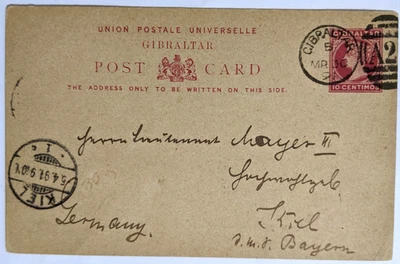 UNION POSTALE UNIVERSELLE
GIBRALTAR
POST CARD
THE ADDRESS ONLY TO BE WRITTEN ON THIS SIDE.
GIBRALTAR
10 CENTIMOS
GIBRALTAR
A26
Herrn Lieutenant Mayer III
Hochwohlgeb.
Kiel
S.M.S. Bayern
Germany.
KIEL
5.4.91.9-10V.
1